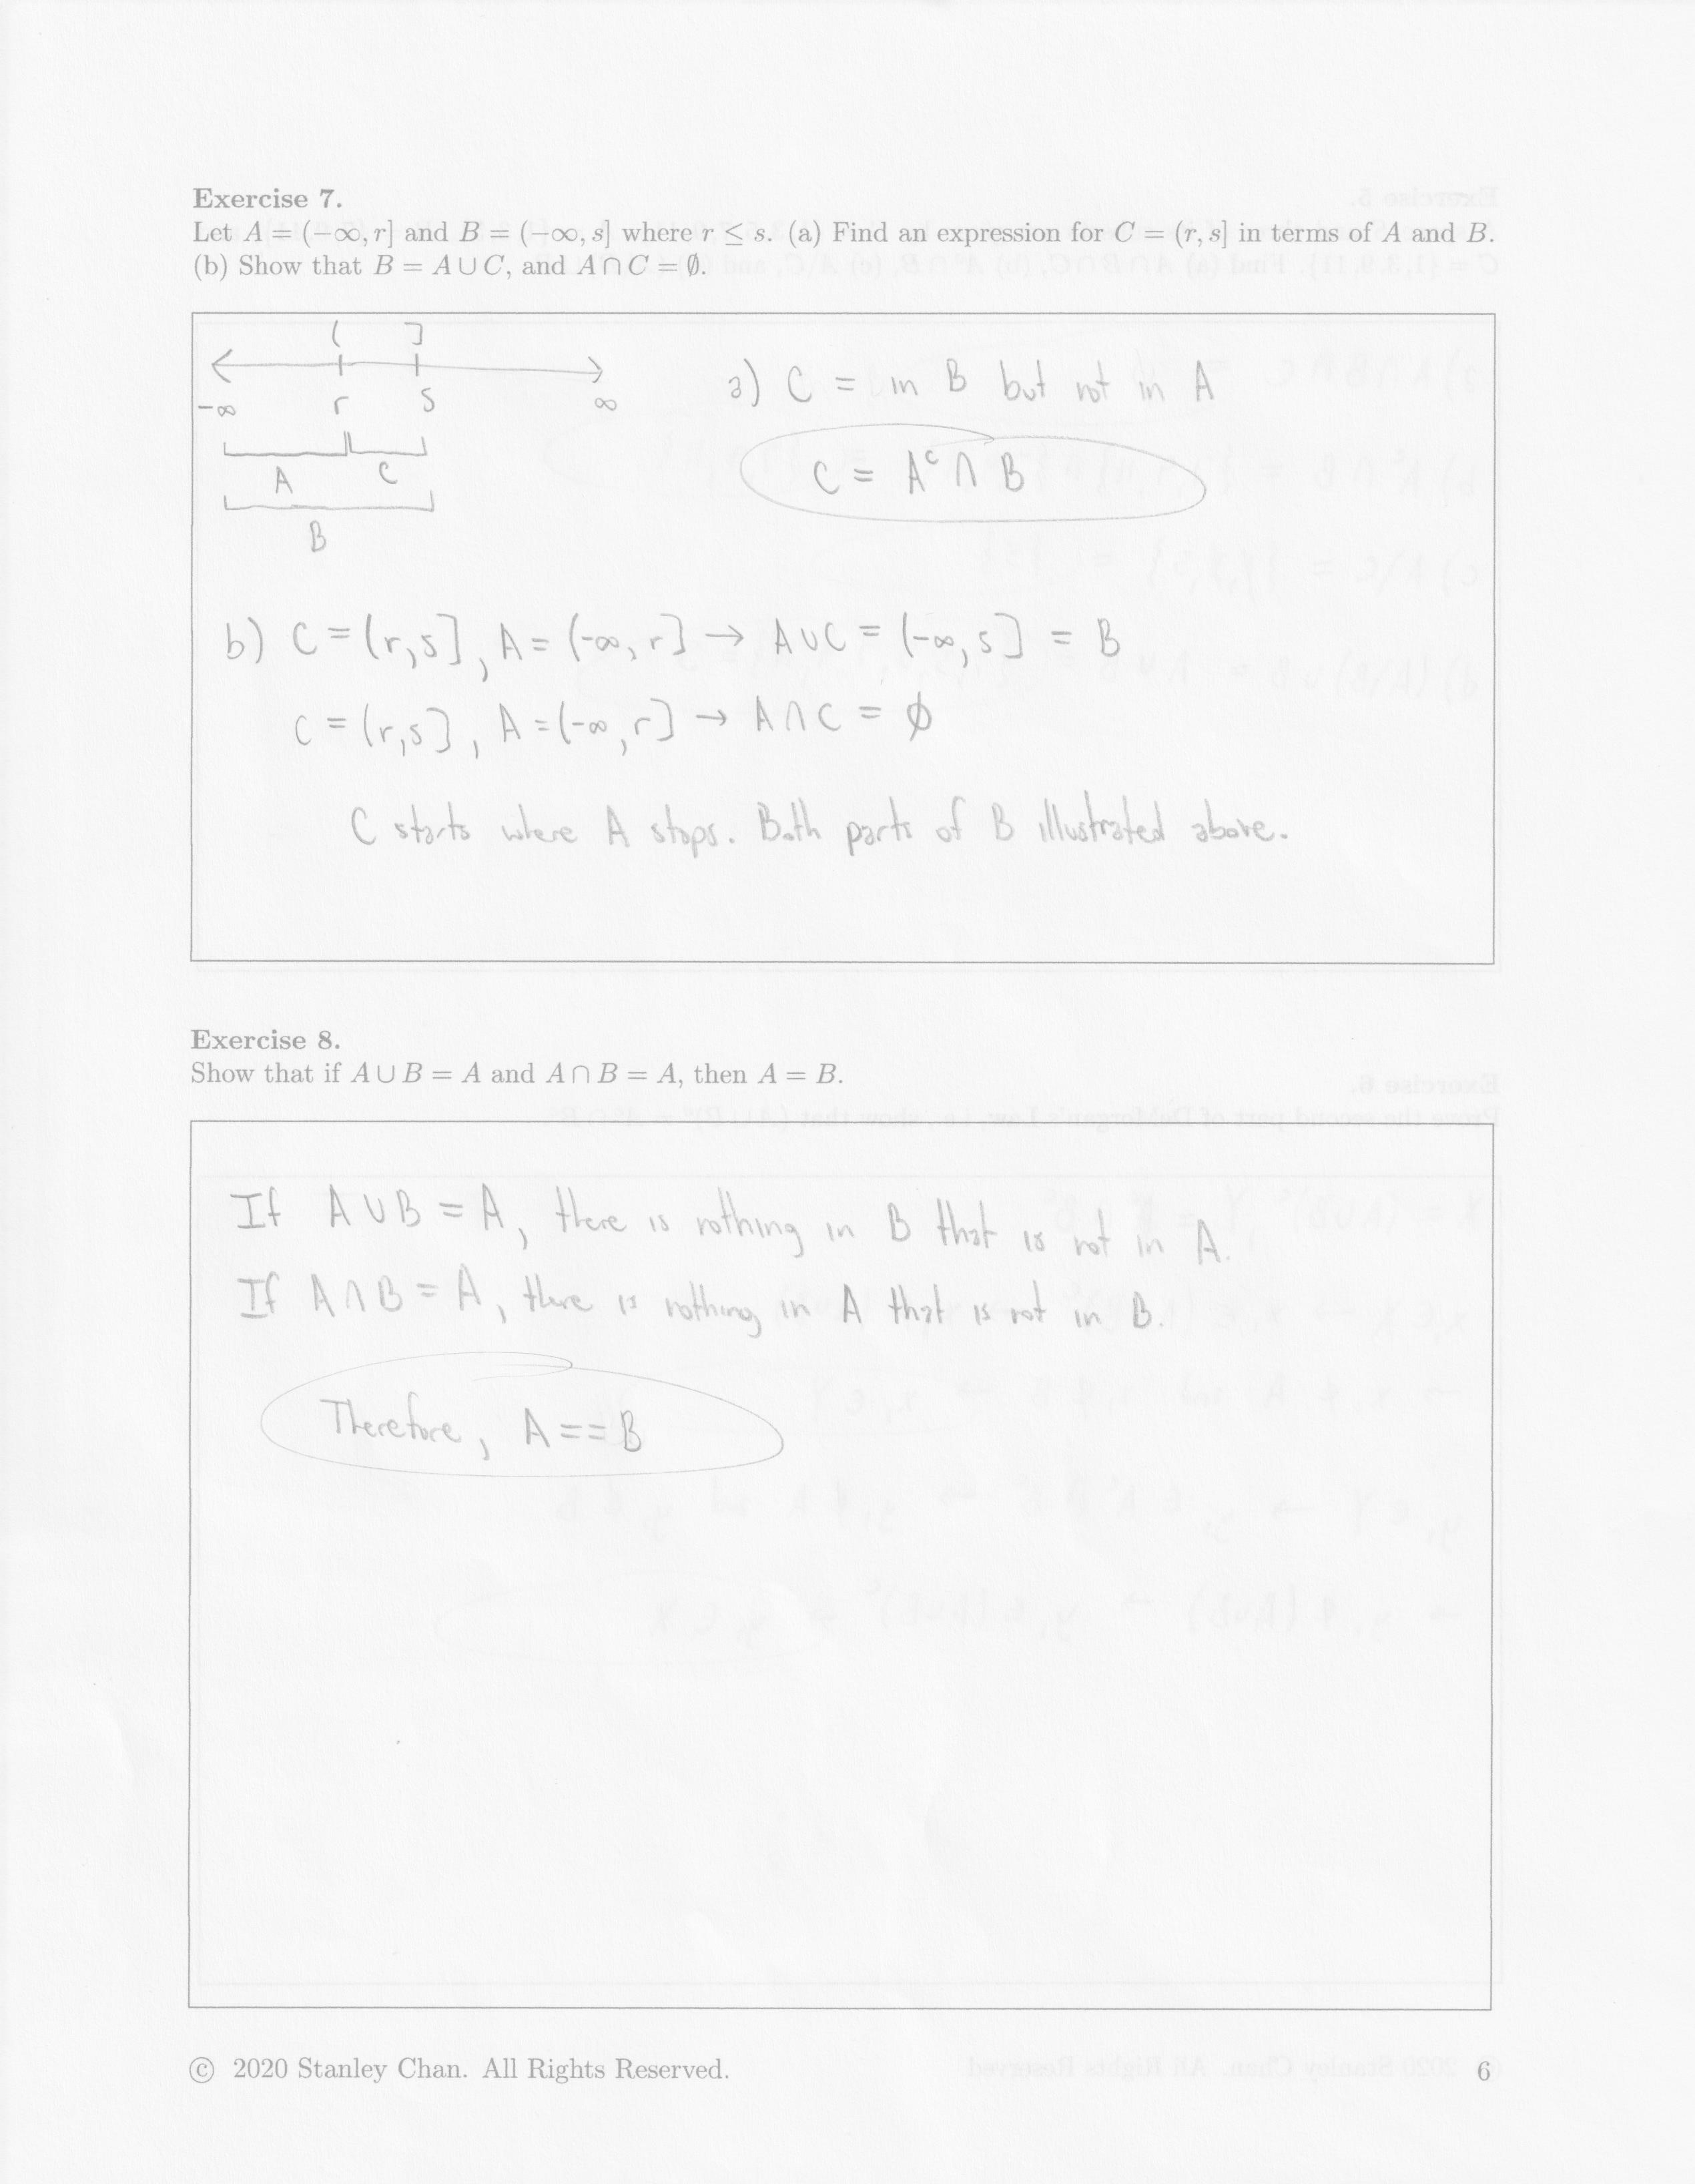 Exercise 7.
Let A = (−∞, r] and B = (−∞, s] where r ≤ s. (a) Find an expression for C = (r, s] in terms of A and B.
(b) Show that B = A ∪ C, and A ∩ C = ∅.
( ]
-∞ r s ∞
A C
B
a) C = in B but not in A
C = Aᶜ ∩ B
b) C = (r,s], A = (-∞, r] → A∪C = (-∞, s] = B
C = (r,s], A = (-∞, r] → A∩C = ∅
C starts where A stops. Both parts of B illustrated above.
Exercise 8.
Show that if A ∪ B = A and A ∩ B = A, then A = B.
If A∪B = A, there is nothing in B that is not in A.
If A∩B = A, there is nothing in A that is not in B.
Therefore, A == B
© 2020 Stanley Chan. All Rights Reserved. 6